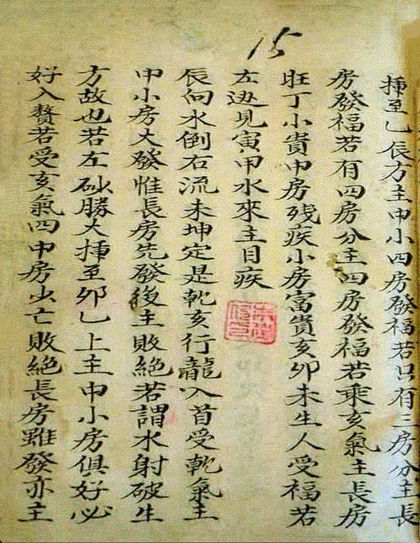 15
揷至乙辰方主中小四房發福若只有三房分主長
房發福若有四房分主四房發福若乘亥氣主長房
旺丁小貴中房残疾小房富貴亥卯未生人受福若
左边見寅甲水來主目疾
辰向水倒右流未坤定是乾亥行龍入首受乾氣主
中小房大發惟長房先發後主敗絕若謂水射破生
方故也若左砂勝大揷至卯乙上主中小房俱好必
好入贅若受亥氣四中房少亡敗絕長房雖發亦主